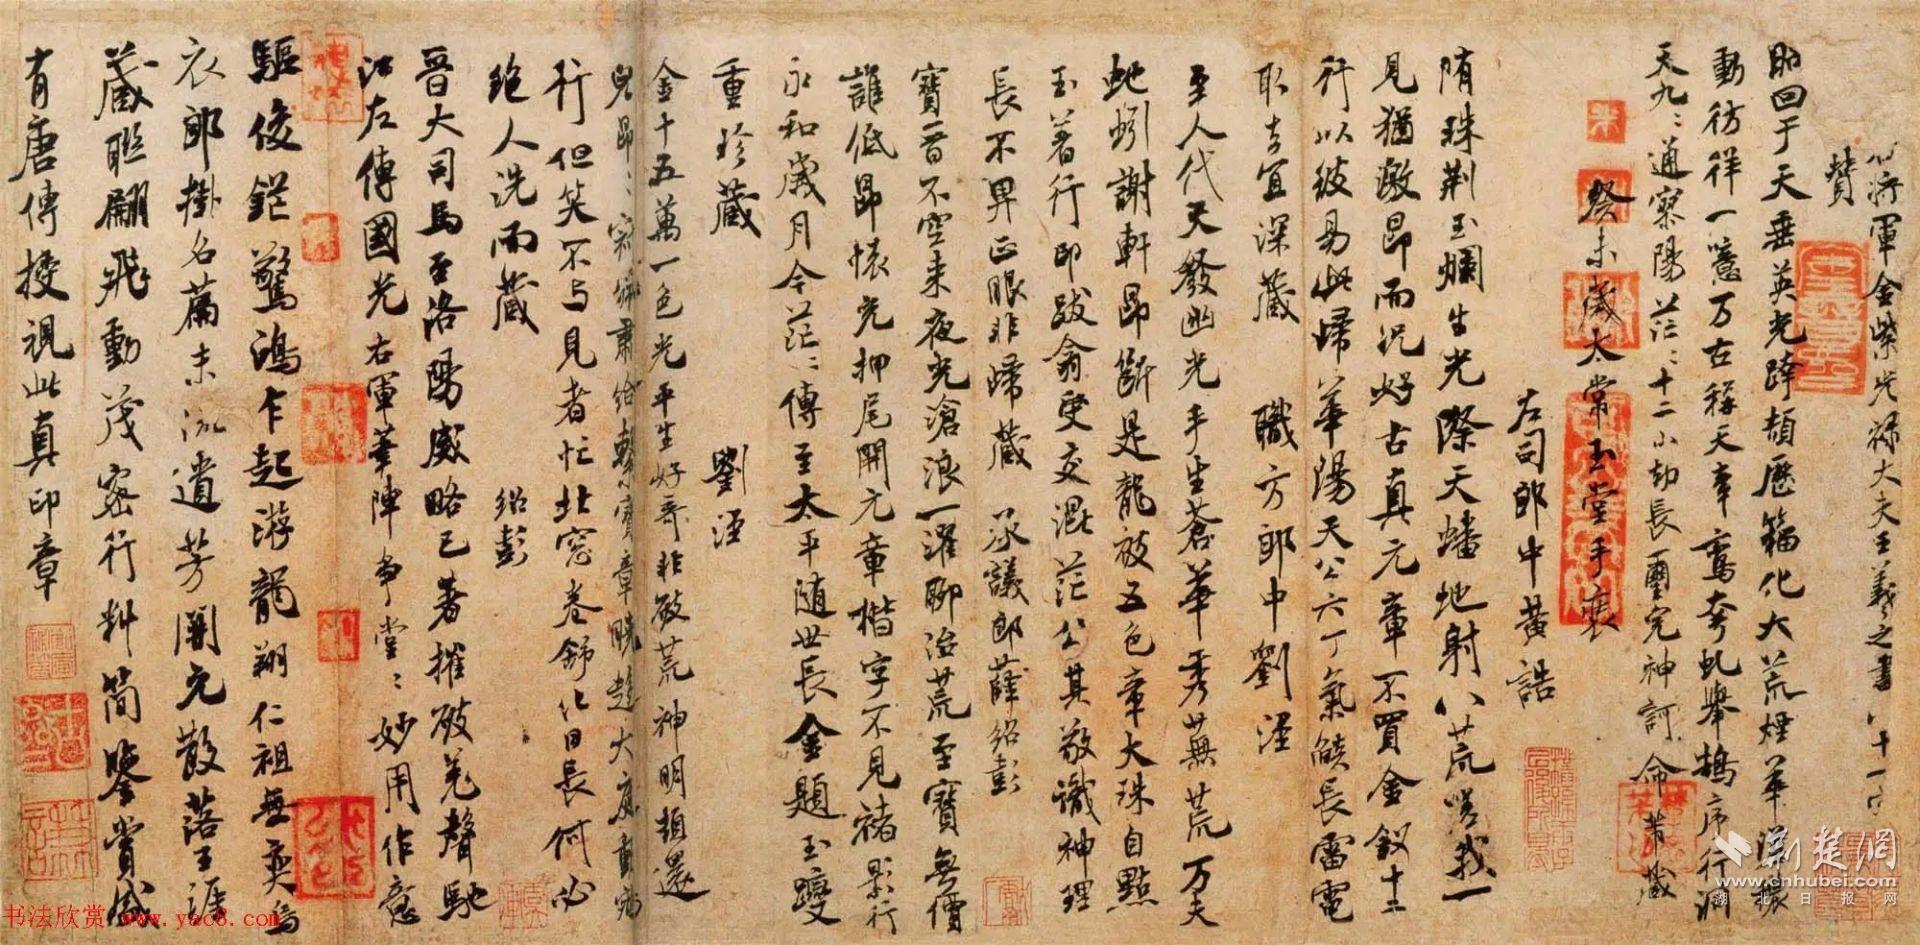 右将軍金紫光禄大夫王羲之書 八十一字
賛
昭回于天垂英光跨頡歷籀化大荒煙華淡穠
動彷徉一噫万古稱天章鸞夸虬舉鵠序行洞
天九〻通寥陽茫〻十二小劫長璽完神訶命芾藏
癸未歲太常玉堂手裝
左司郎中黃誥
隋珠荆玉爛生光際天蟠地射八荒嗟我一
見猶激昂而況好古真元章不買金釵十二
行以彼易此歸華陽天公六丁氣燄長雷電
取去宜深藏 職方郎中劉涇
至人代天發幽光手生蒼華秀蕪荒万夫
虵蚓謝軒昂斷是龍被五色章大珠自點
玉著行卽跋翁叟交混茫公其敬識神理
長不畀正眼非歸藏 承議郎薛紹彭
寶晋不空来夜光滄浪一濯聊治荒至寶無價
誰低昂懷充押尾開元章楷字不見褚影行
永和歲月今茫〻傳至太平随世長金題玉躞
重珍藏 劉涇
金十五萬一色光平生好奇非破荒神明頓還
行但笑不与見者忙北窓卷舒化日長何必
绝人洗而藏 紹彭
晉大司馬至洛陽威略已著摧破羌聲馳
江左傳國光右軍筆陣爭堂〻妙用作意
驅俊鋩驚鴻乍起游龍翔仁祖無奕烏
衣郎掛名篇末流遺芳開元散落王涯
藏聯翩飛動茂密行料簡鑒賞咸
有唐傳授視此真印章
荆楚網
www.cnhubei.com
湖北日报网
书法欣赏 www.yac8.com